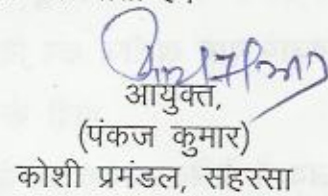 आयुक्त,
(पंकज कुमार)
कोशी प्रमंडल, सहरसा